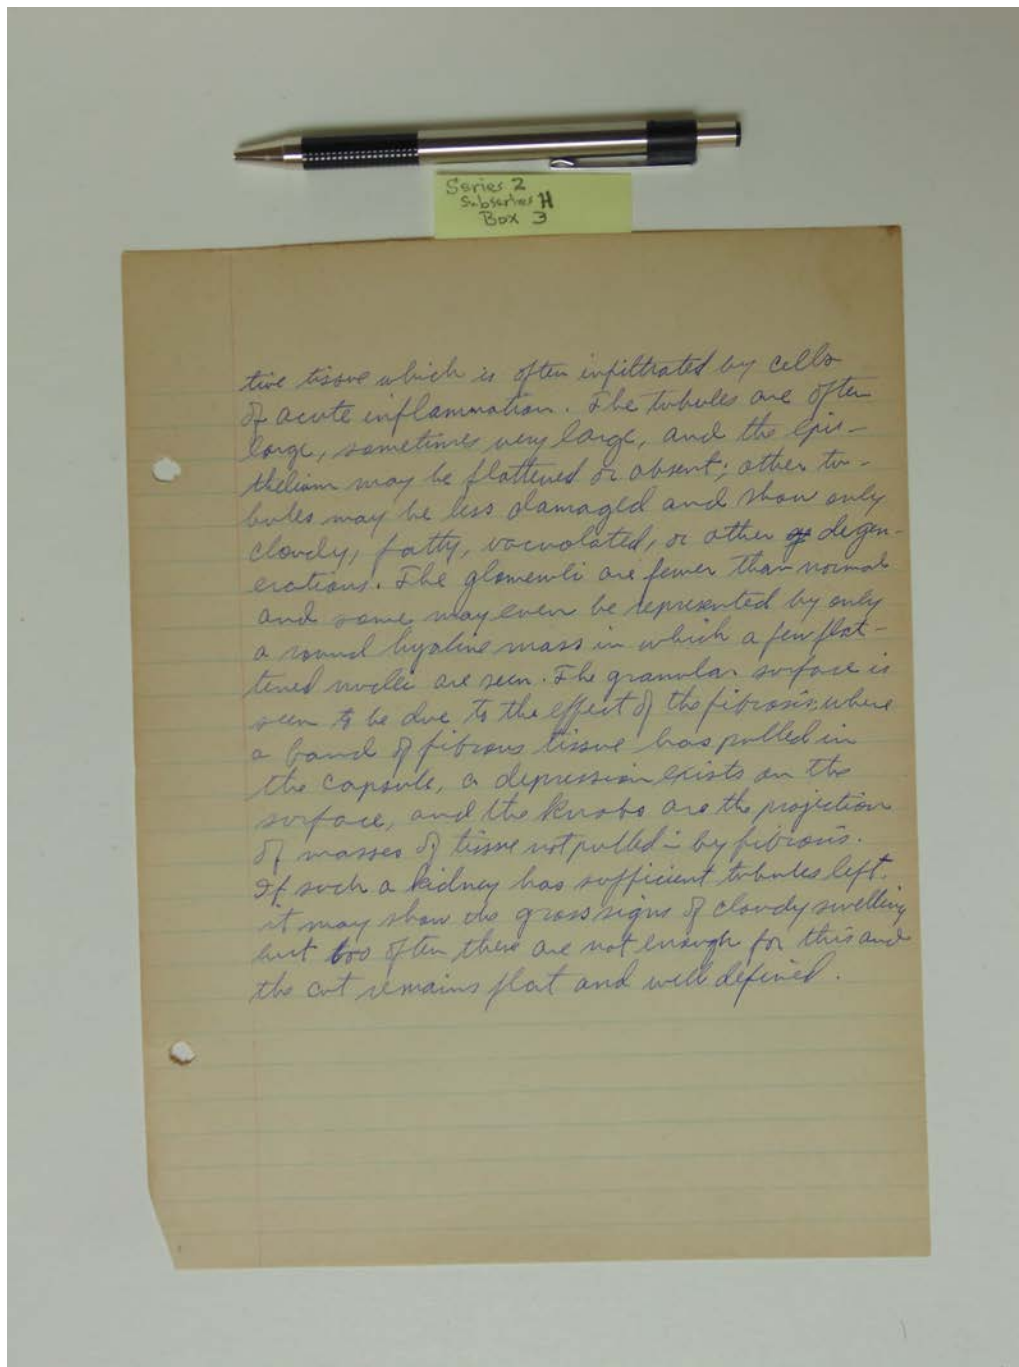 Series 2
Subseries H
Box 3
tive tissue which is often infiltrated by cells
of acute inflammation. The tubules are often
large, sometimes very large, and the epi-
thelium may be flattened or absent; other tu-
bules may be less damaged and show only
cloudy, fatty, vacuolated, or other degen-
erations. The glomeruli are fewer than normal
and some may even be represented by only
a round hyaline mass in which a few flat-
tened nuclei are seen. The granular surface is
seen to be due to the effect of the fibrosis; where
a band of fibrous tissue has pulled in
the capsule, a depression exists on the
surface, and the knobs are the projection
of masses of tissue not pulled in by fibrosis.
If such a kidney has sufficient tubules left,
it may show the gross signs of cloudy swelling
but too often there are not enough for this and
the cut remains flat and well defined.